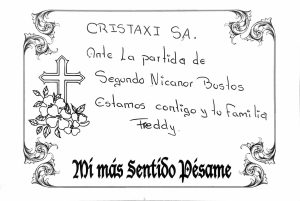 CRISTAXI SA.
Ante La partida de
Segundo Nicanor Bustos
Estamos contigo y tu Familia
Freddy.
Mi más Sentido Pésame